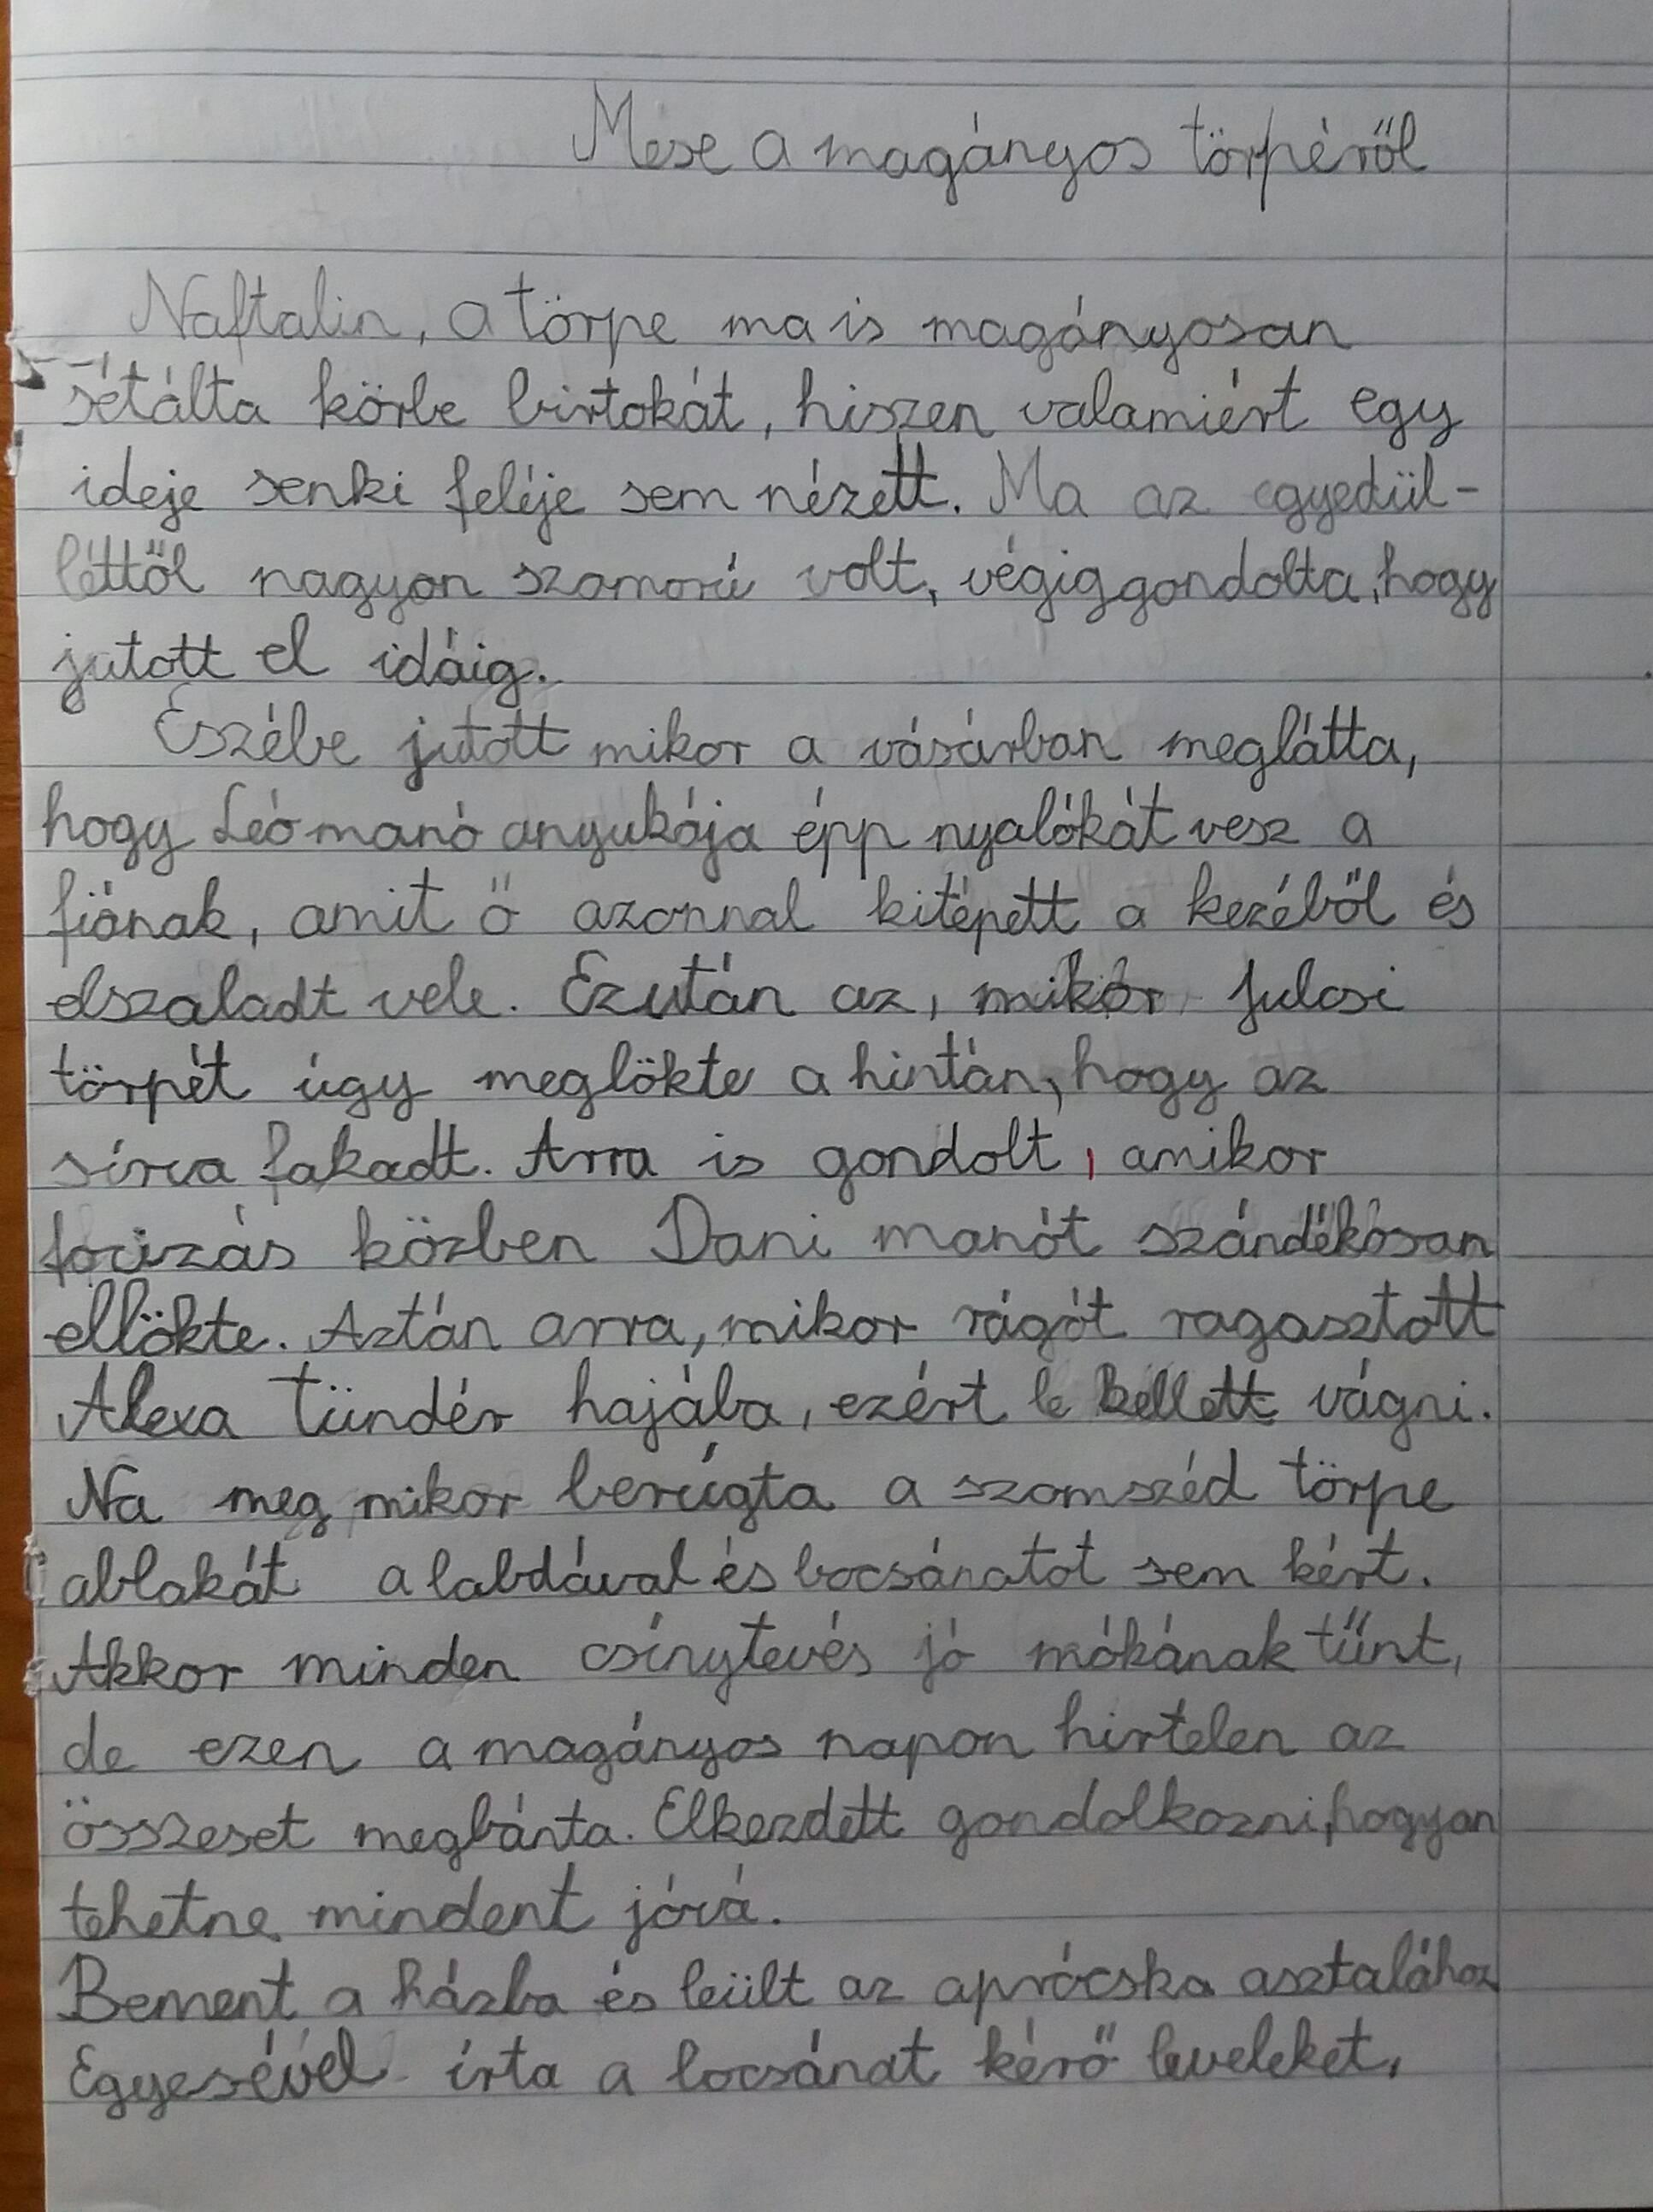 Mese a magányos törpéről
Naftalin, a törpe ma is magányosan
sétálta körbe birtokát, hiszen valamiért egy
ideje senki feléje sem nézett. Ma az egyedül-
léttől nagyon szomorú volt, végiggondolta, hogy
jutott el idáig.
Eszébe jutott mikor a vásárban meglátta,
hogy Leó manó anyukája épp nyalókát vesz a
fiának, amit ő azonnal kitépett a kezéből és
elszaladt vele. Ezután az, mikor Julcsi
törpét úgy meglökte a hintán, hogy az
sírva fakadt. Arra is gondolt, amikor
focizás közben Dani manót szándékosan
ellökte. Aztán arra, mikor rágót ragasztott
Alexa tündér hajába, ezért le kellett vágni.
Na meg mikor berúgta a szomszéd törpe
ablakát a labdával és bocsánatot sem kért.
Akkor minden csínytevés jó mókának tűnt,
de ezen a magányos napon hirtelen az
összeset megbánta. Elkezdett gondolkozni, hogyan
tehetne mindent jóvá.
Bement a házba és leült az aprócska asztalához
Egyesével írta a bocsánat kérő leveleket,